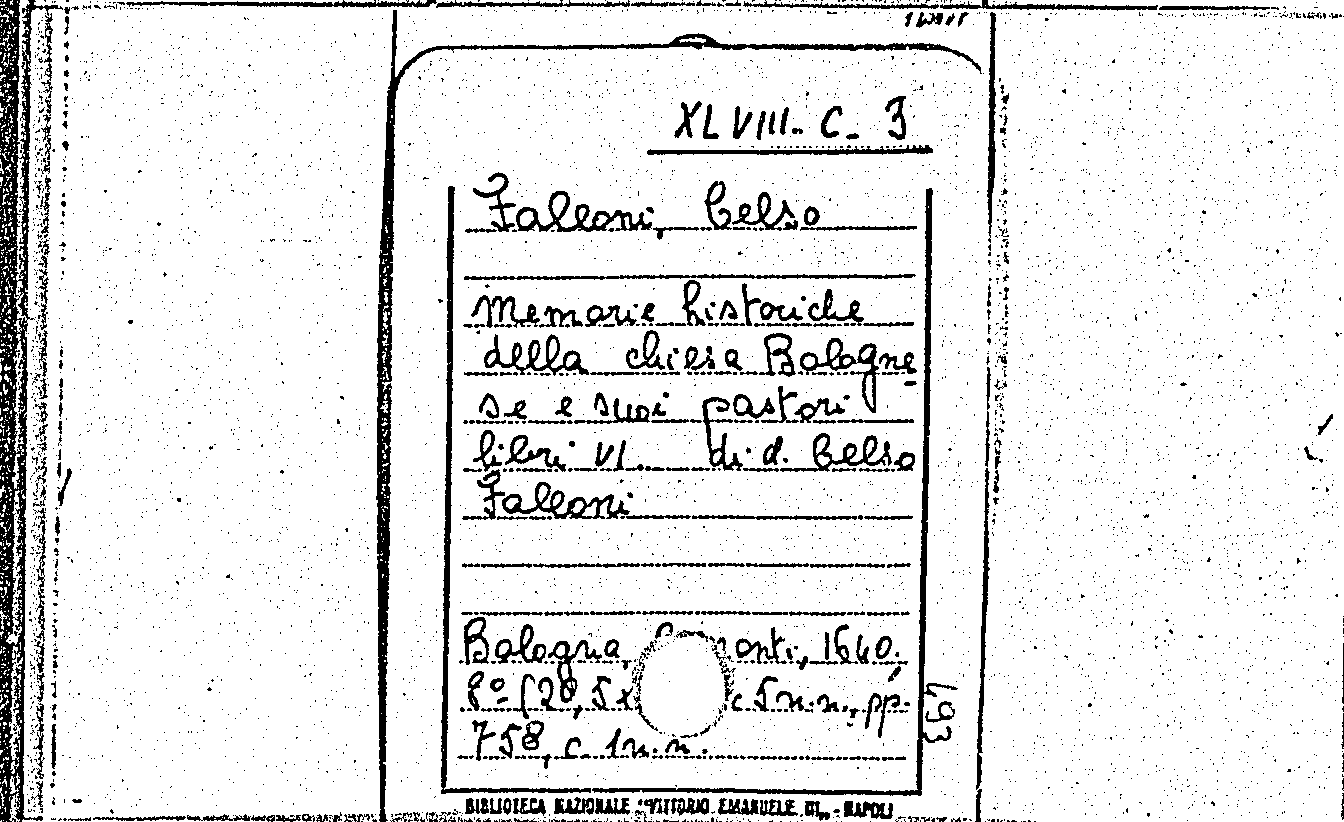 XLVIII. C. 3
Falleoni, Celso
Memorie historiche
della chiesa Bologne
se e suoi pastori
libri VI. di d. Celso
Falleoni
Bologna, onti, 1640.
8º (20,5x c. 5 n.n., pp.
758, c. 1 n.n.
493
BIBLIOTECA NAZIONALE "VITTORIO EMANUELE III" - NAPOLI